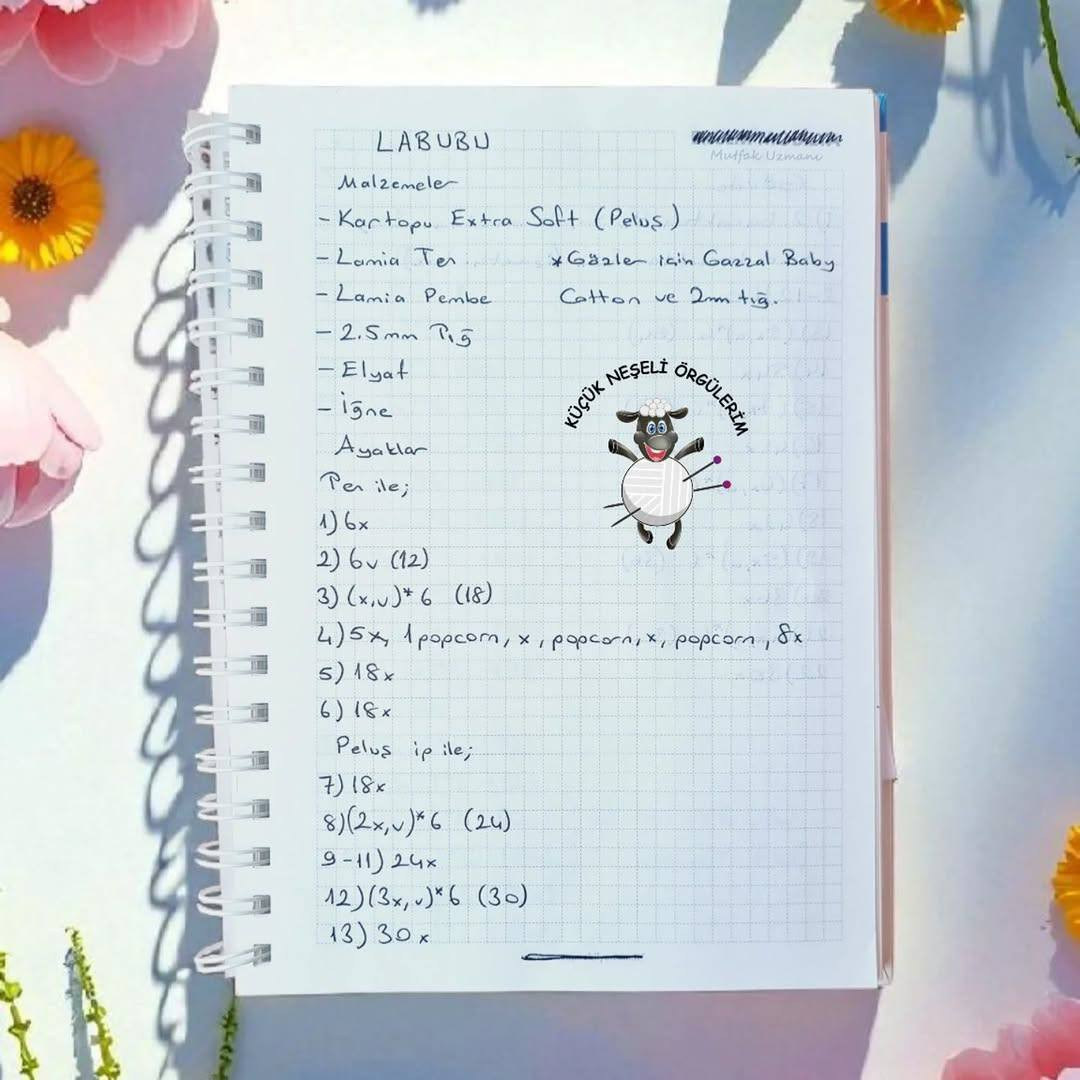 LABUBU
Mutfak Uzmanı
Malzemeler
- Kartopu Extra Soft (Peluş)
- Lamia Ten
*Gözler için Gazzal Baby
- Lamia Pembe
Cotton ve 2mm tığ.
- 2.5mm Tığ
- Elyaf
- İğne
KÜÇÜK NEŞELİ ÖRGÜLERİM
Ayaklar
Ten ile;
1) 6x
2) 6v (12)
3) (x,v)*6 (18)
4) 5x, 1popcorn, x, popcorn, x, popcorn, 8x
5) 18x
6) 18x
Peluş ip ile;
7) 18x
8) (2x,v)*6 (24)
9-11) 24x
12) (3x,v)*6 (30)
13) 30x